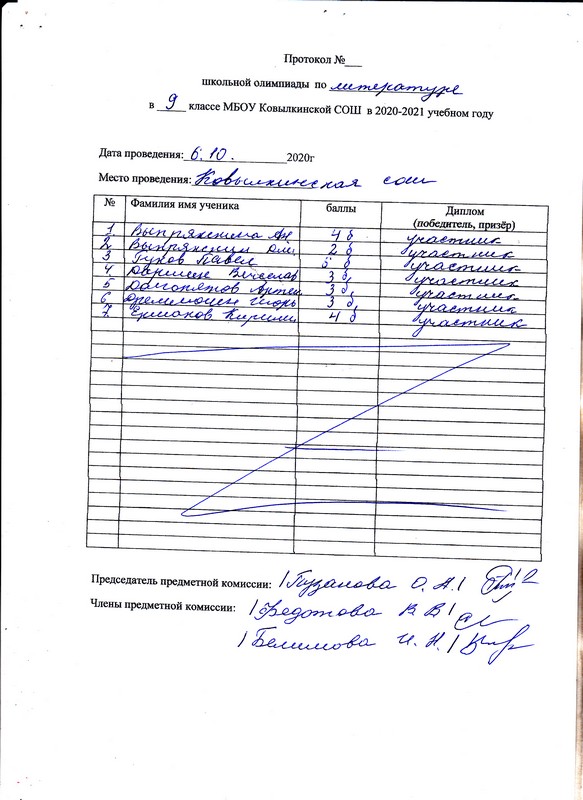 Протокол №___
школьной олимпиады по литературе
в 9 классе МБОУ Ковылкинской СОШ в 2020-2021 учебном году
Дата проведения: 6.10. 2020г
Место проведения: Ковылкинская сош
№ Фамилия имя ученика баллы Диплом (победитель, призёр)
1. Выпряжкина Ан 4 б участник
2. Выпряжкин Дми 2 б участник
3 Гуков Павел 5 б участник
4. Вячеслав 3 б, участник
5 Долгопятов Артем 3 б, участник
6. Игорь 3 б, участник
7. Ермаков Кирилл 4 б участник
Председатель предметной комиссии: /Пузанова О. А./
Члены предметной комиссии: /Федотова В В/
/Белимова И. Н./